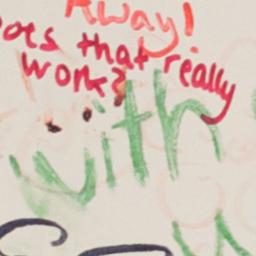 Away!
oes that really
work?
with